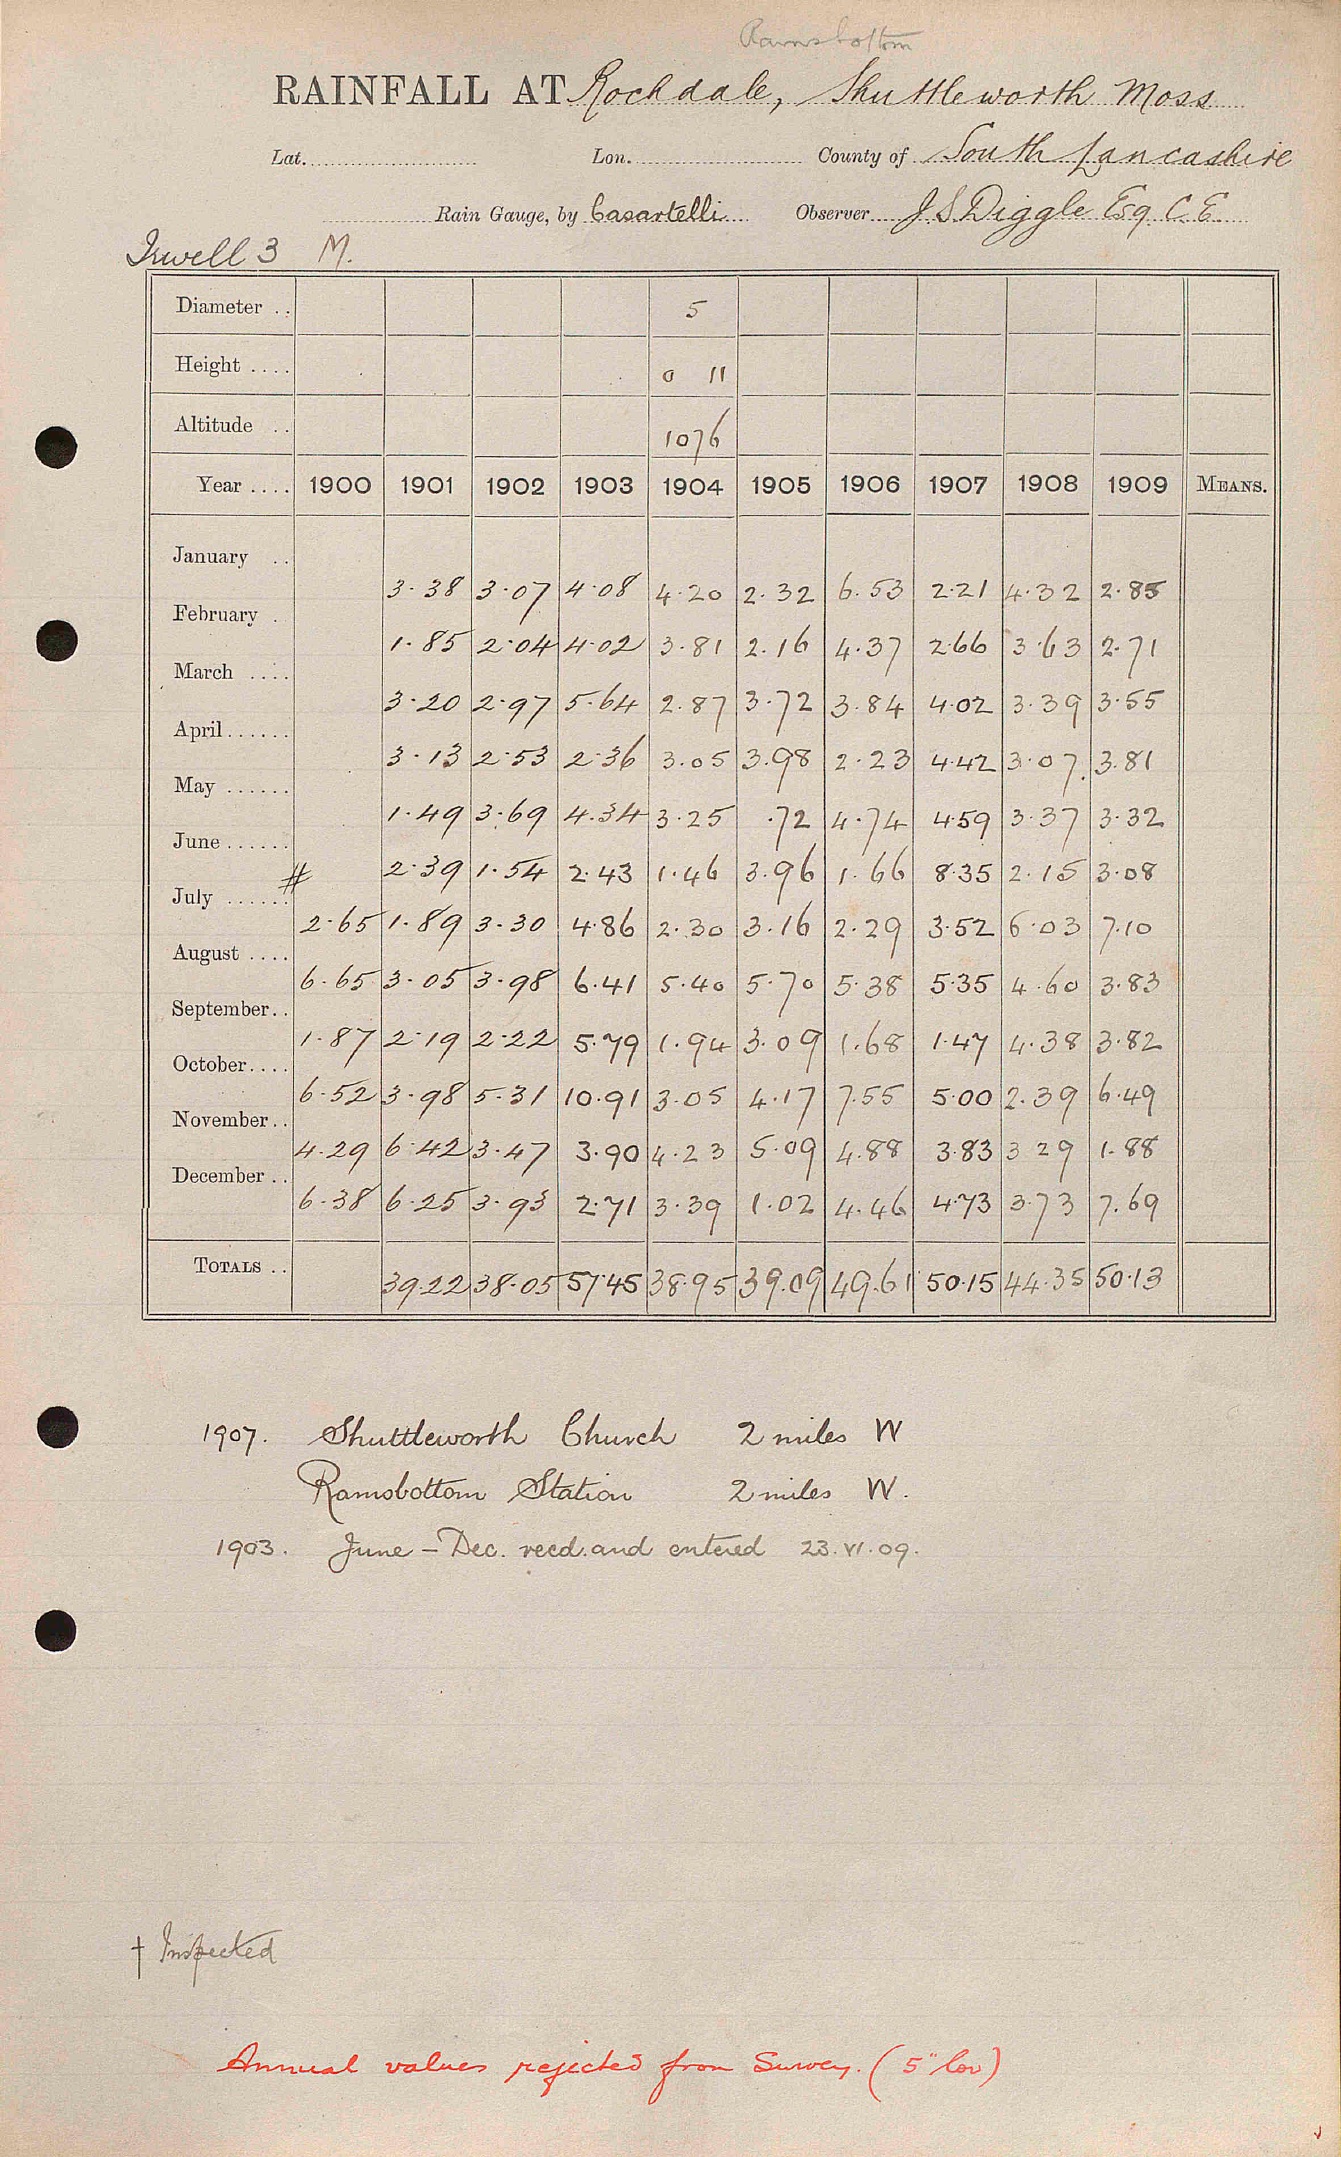 Ramsbottom
RAINFALL AT Rochdale, Shuttleworth Moss
Lat. Lon. County of South Lancashire
Rain Gauge, by Casartelli Observer J S Diggle Esq. C. E.
Irwell 3 M.
Diameter .. 5
Height .... 0 11
Altitude .. 1076
Year .... 1900 1901 1902 1903 1904 1905 1906 1907 1908 1909 MEANS.
January .. 3.38 3.07 4.08 4.20 2.32 6.53 2.21 4.32 2.85
February . 1.85 2.04 4.02 3.81 2.16 4.37 2.66 3.63 2.71
March .... 3.20 2.97 5.64 2.87 3.72 3.84 4.02 3.39 3.55
April...... 3.13 2.53 2.36 3.05 3.98 2.23 4.42 3.07 3.81
May ...... 1.49 3.69 4.34 3.25 .72 4.74 4.59 3.37 3.32
June ...... 2.39 1.54 2.43 1.46 3.96 1.66 8.35 2.15 3.08
July ...... # 2.65 1.89 3.30 4.86 2.30 3.16 2.29 3.52 6.03 7.10
August .... 6.65 3.05 3.98 6.41 5.40 5.70 5.38 5.35 4.60 3.83
September.. 1.87 2.19 2.22 5.79 1.94 3.09 1.68 1.47 4.38 3.82
October.... 6.52 3.98 5.31 10.91 3.05 4.17 7.55 5.00 2.39 6.49
November.. 4.29 6.42 3.47 3.90 4.23 5.09 4.88 3.83 3 29 1.88
December .. 6.38 6.25 3.93 2.71 3.39 1.02 4.46 4.73 3.73 7.69
TOTALS .. 39.22 38.05 57.45 38.95 39.09 49.61 50.15 44.35 50.13
1907. Shuttleworth Church 2 miles W
Ramsbottom Station 2 miles W.
1903. June – Dec. recd. and entered 23.VI.09.
† Inspected
Annual values rejected from Survey. (5" low)